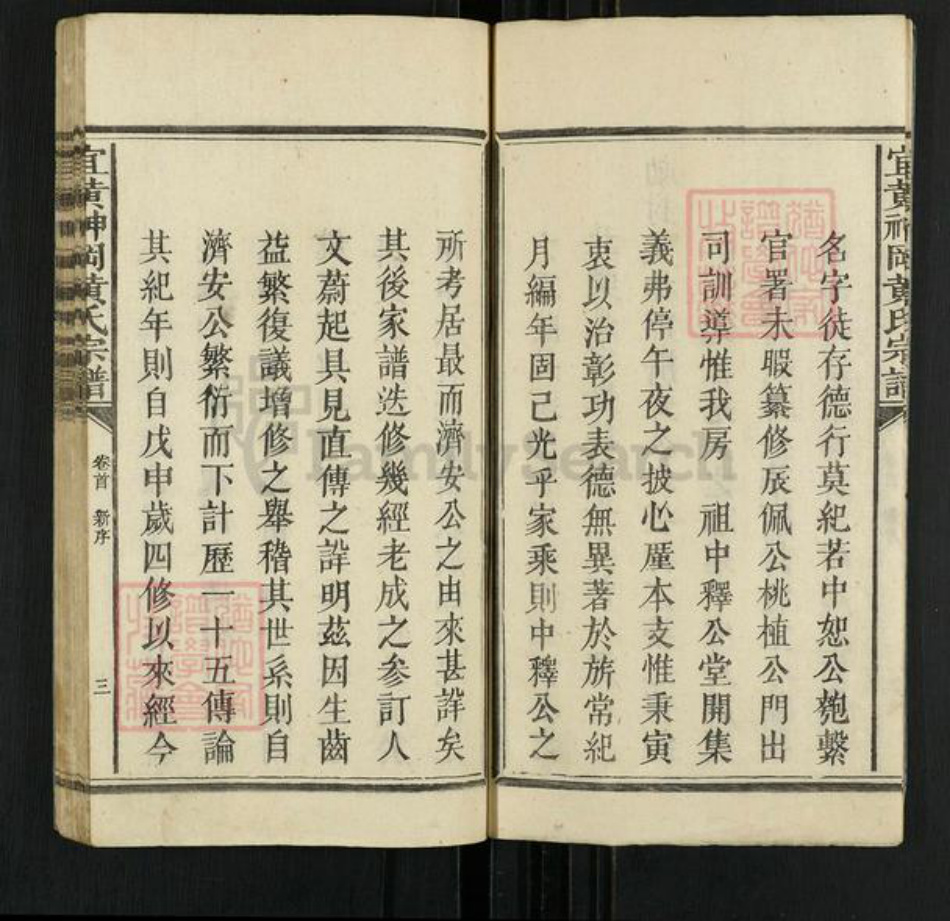 宜黄神岡黄氏宗譜
名字徒存德行莫紀若中恕公匏繫
官署未暇纂修辰佩公桃植公門出
司訓導惟我房 祖中釋公堂開集
義弗停午夜之披心厪本支惟秉寅
衷以治彰功表德無異著於旂常紀
月編年固己光乎家乘則中釋公之
所考居最而濟安公之由來甚詳矣
其後家譜迭修幾經老成之參訂人
文蔚起具見直傳之詳明茲因生齒
益繁復議增修之舉稽其世系則自
濟安公繁衍而下計歷一十五傳論
其紀年則自戊申歲四修以來經今
宜黄神岡黄氏宗譜
卷首 新序
三
FamilySearch